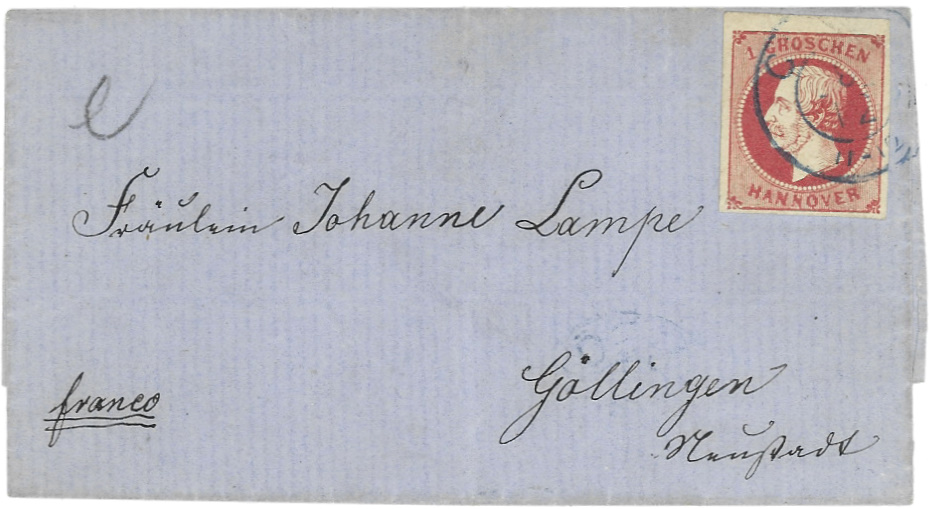 1 GROSCHEN
HANNOVER
Fräulein Johanne Lampe
Göllingen
Neustadt
franco